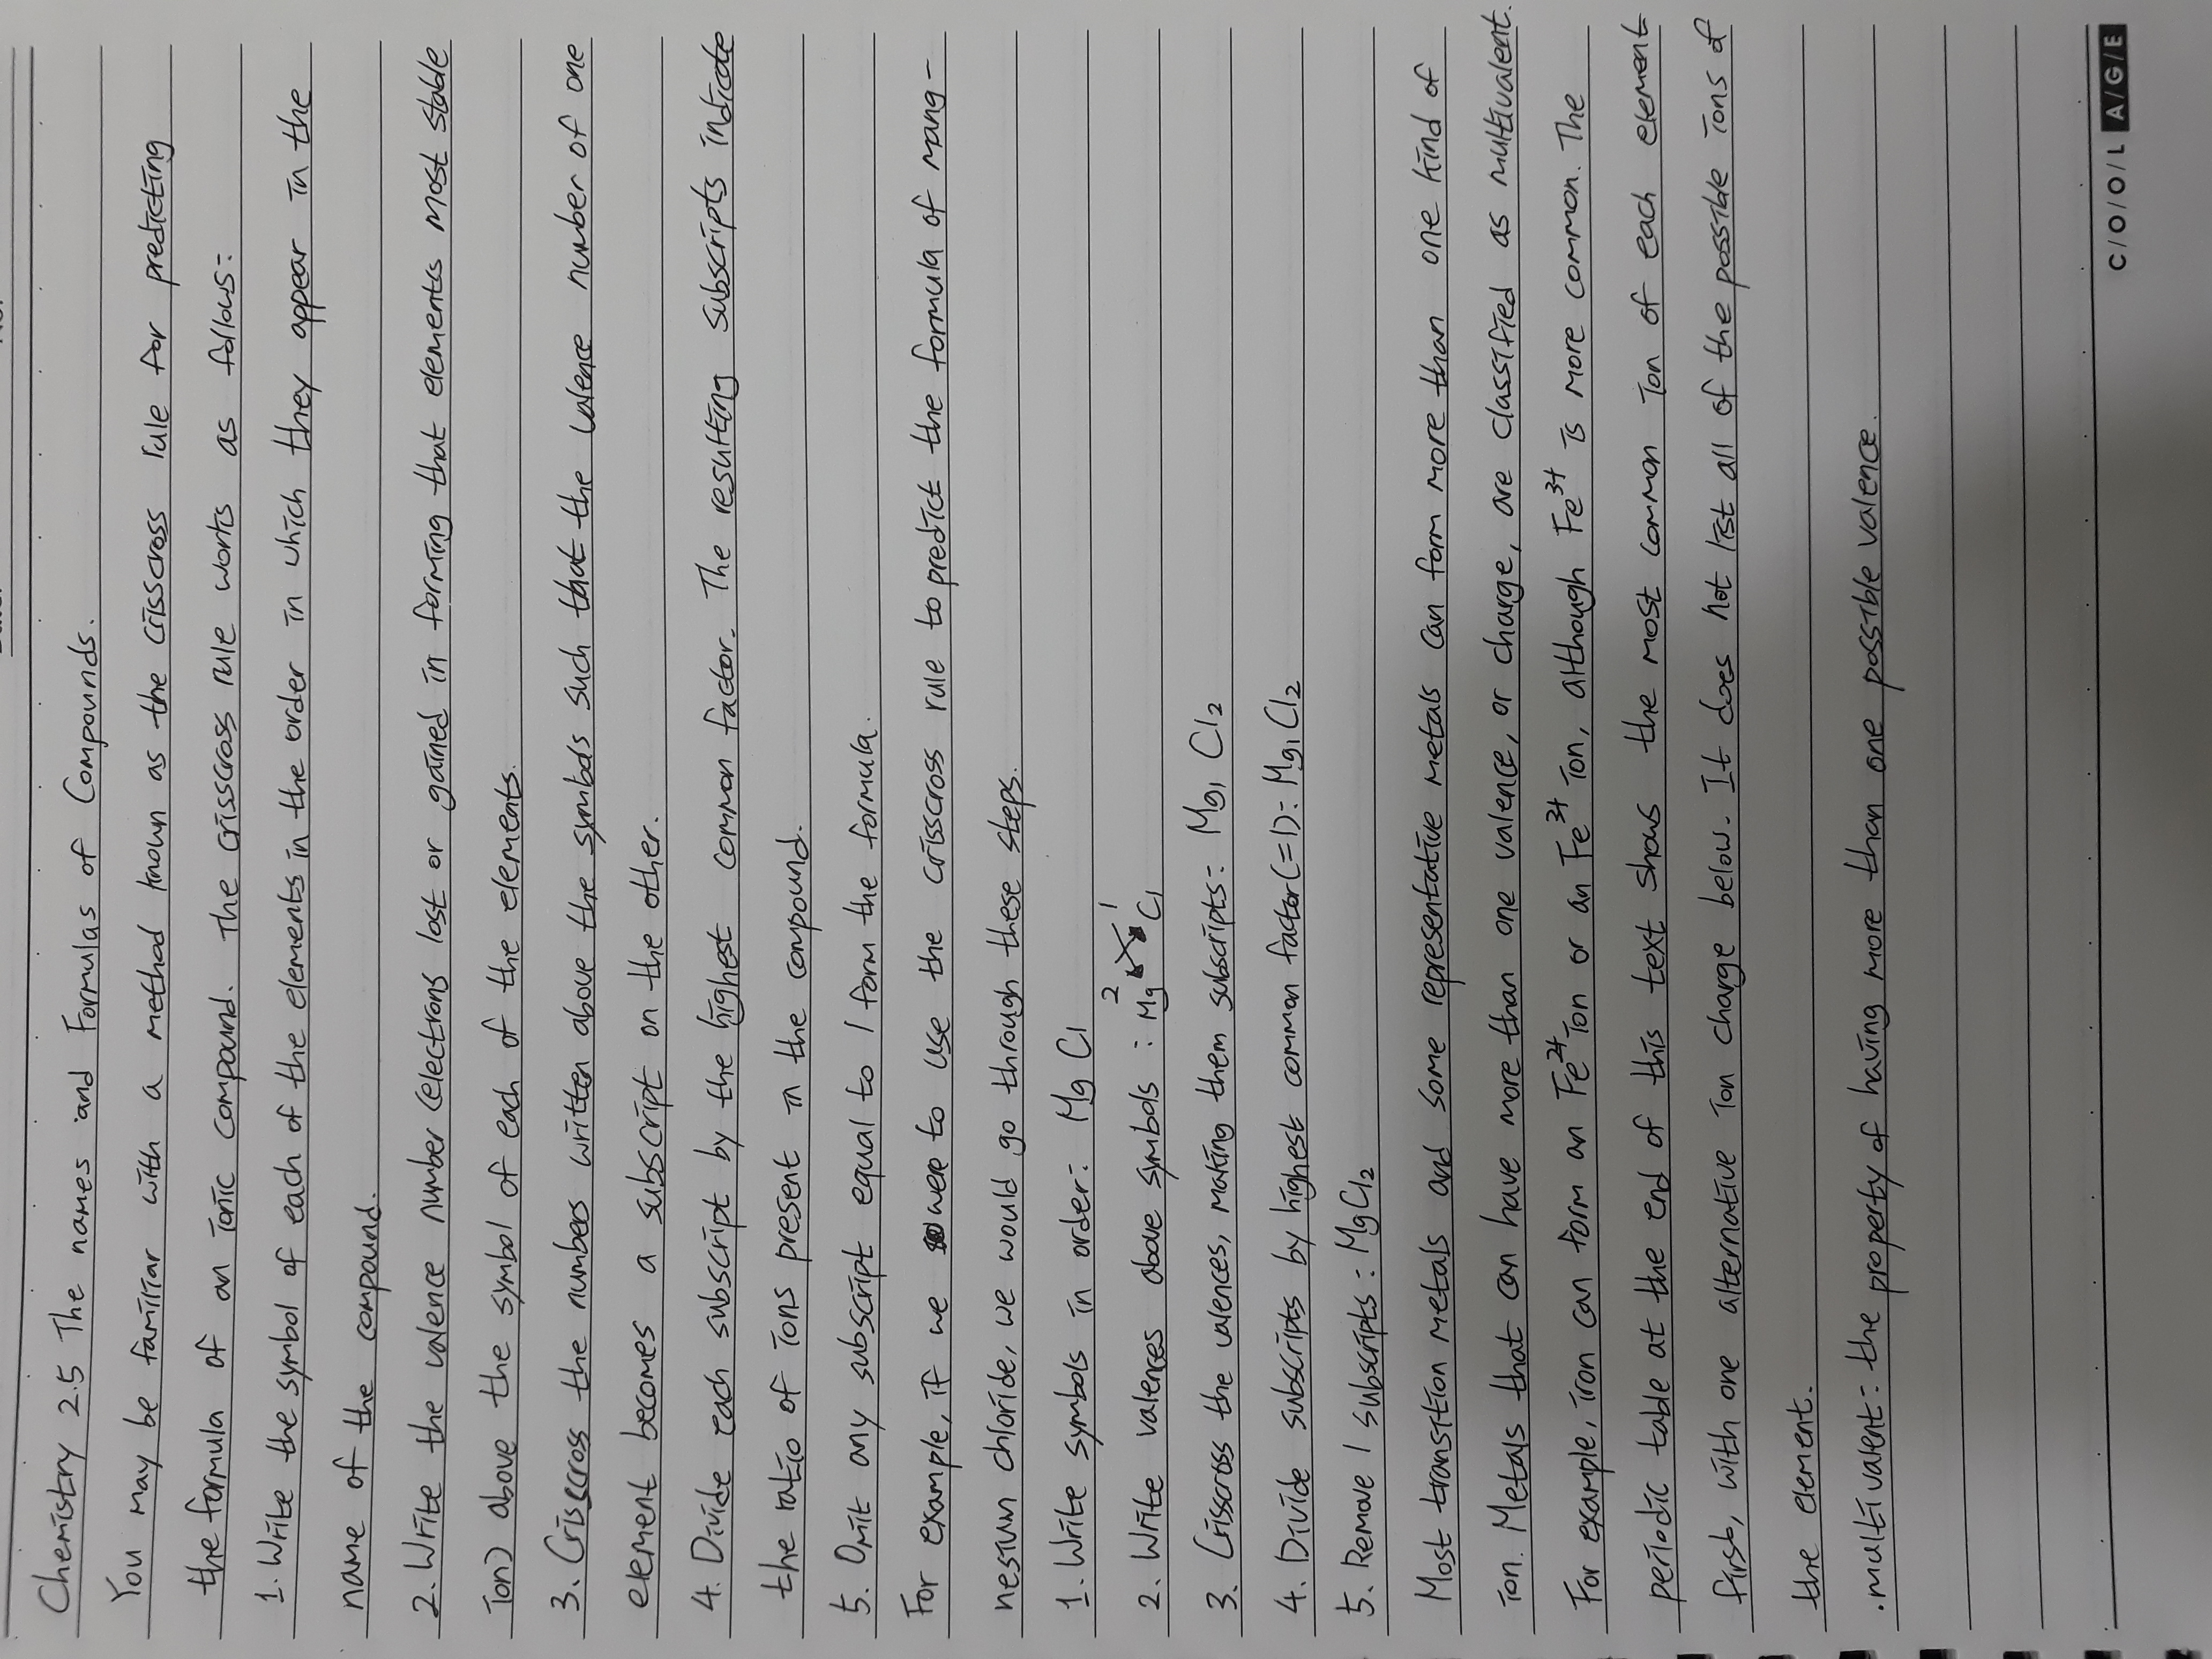 Chemistry 2.5 The names and Formulas of Compounds.
You may be familiar with a method known as the crisscross rule for predicting
the formula of an ionic compound. The crisscross rule works as follows:
1. Write the symbol of each of the elements in the order in which they appear in the
name of the compound.
2. Write the valence number (electrons lost or gained in forming that elements most stable
ion) above the symbol of each of the elements.
3. Crisscross the numbers written above the symbols such that the valence number of one
element becomes a subscript on the other.
4. Divide each subscript by the highest common factor. The resulting subscripts indicate
the ratio of ions present in the compound.
5. Omit any subscript equal to 1 form the formula.
For example, if we were to use the crisscross rule to predict the formula of mang-
nesium chloride, we would go through these steps.
1. Write symbols in order: Mg Cl
2. Write valences above symbols: Mg² Cl¹
3. Crisscross the valences, making them subscripts: Mg₁ Cl₂
4. Divide subscripts by highest common factor(=1): Mg₁Cl₂
5. Remove 1 subscripts: MgCl₂
Most transition metals and some representative metals can form more than one kind of
ion. Metals that can have more than one valence, or charge, are classified as multivalent.
For example, iron can form an Fe²⁺ ion or an Fe³⁺ ion, although Fe³⁺ is more common. The
periodic table at the end of this text shows the most common ion of each element
first, with one alternative ion charge below. It does not list all of the possible ions of
the element.
·multivalent: the property of having more than one possible valence.
C/O/O/L A/G/E